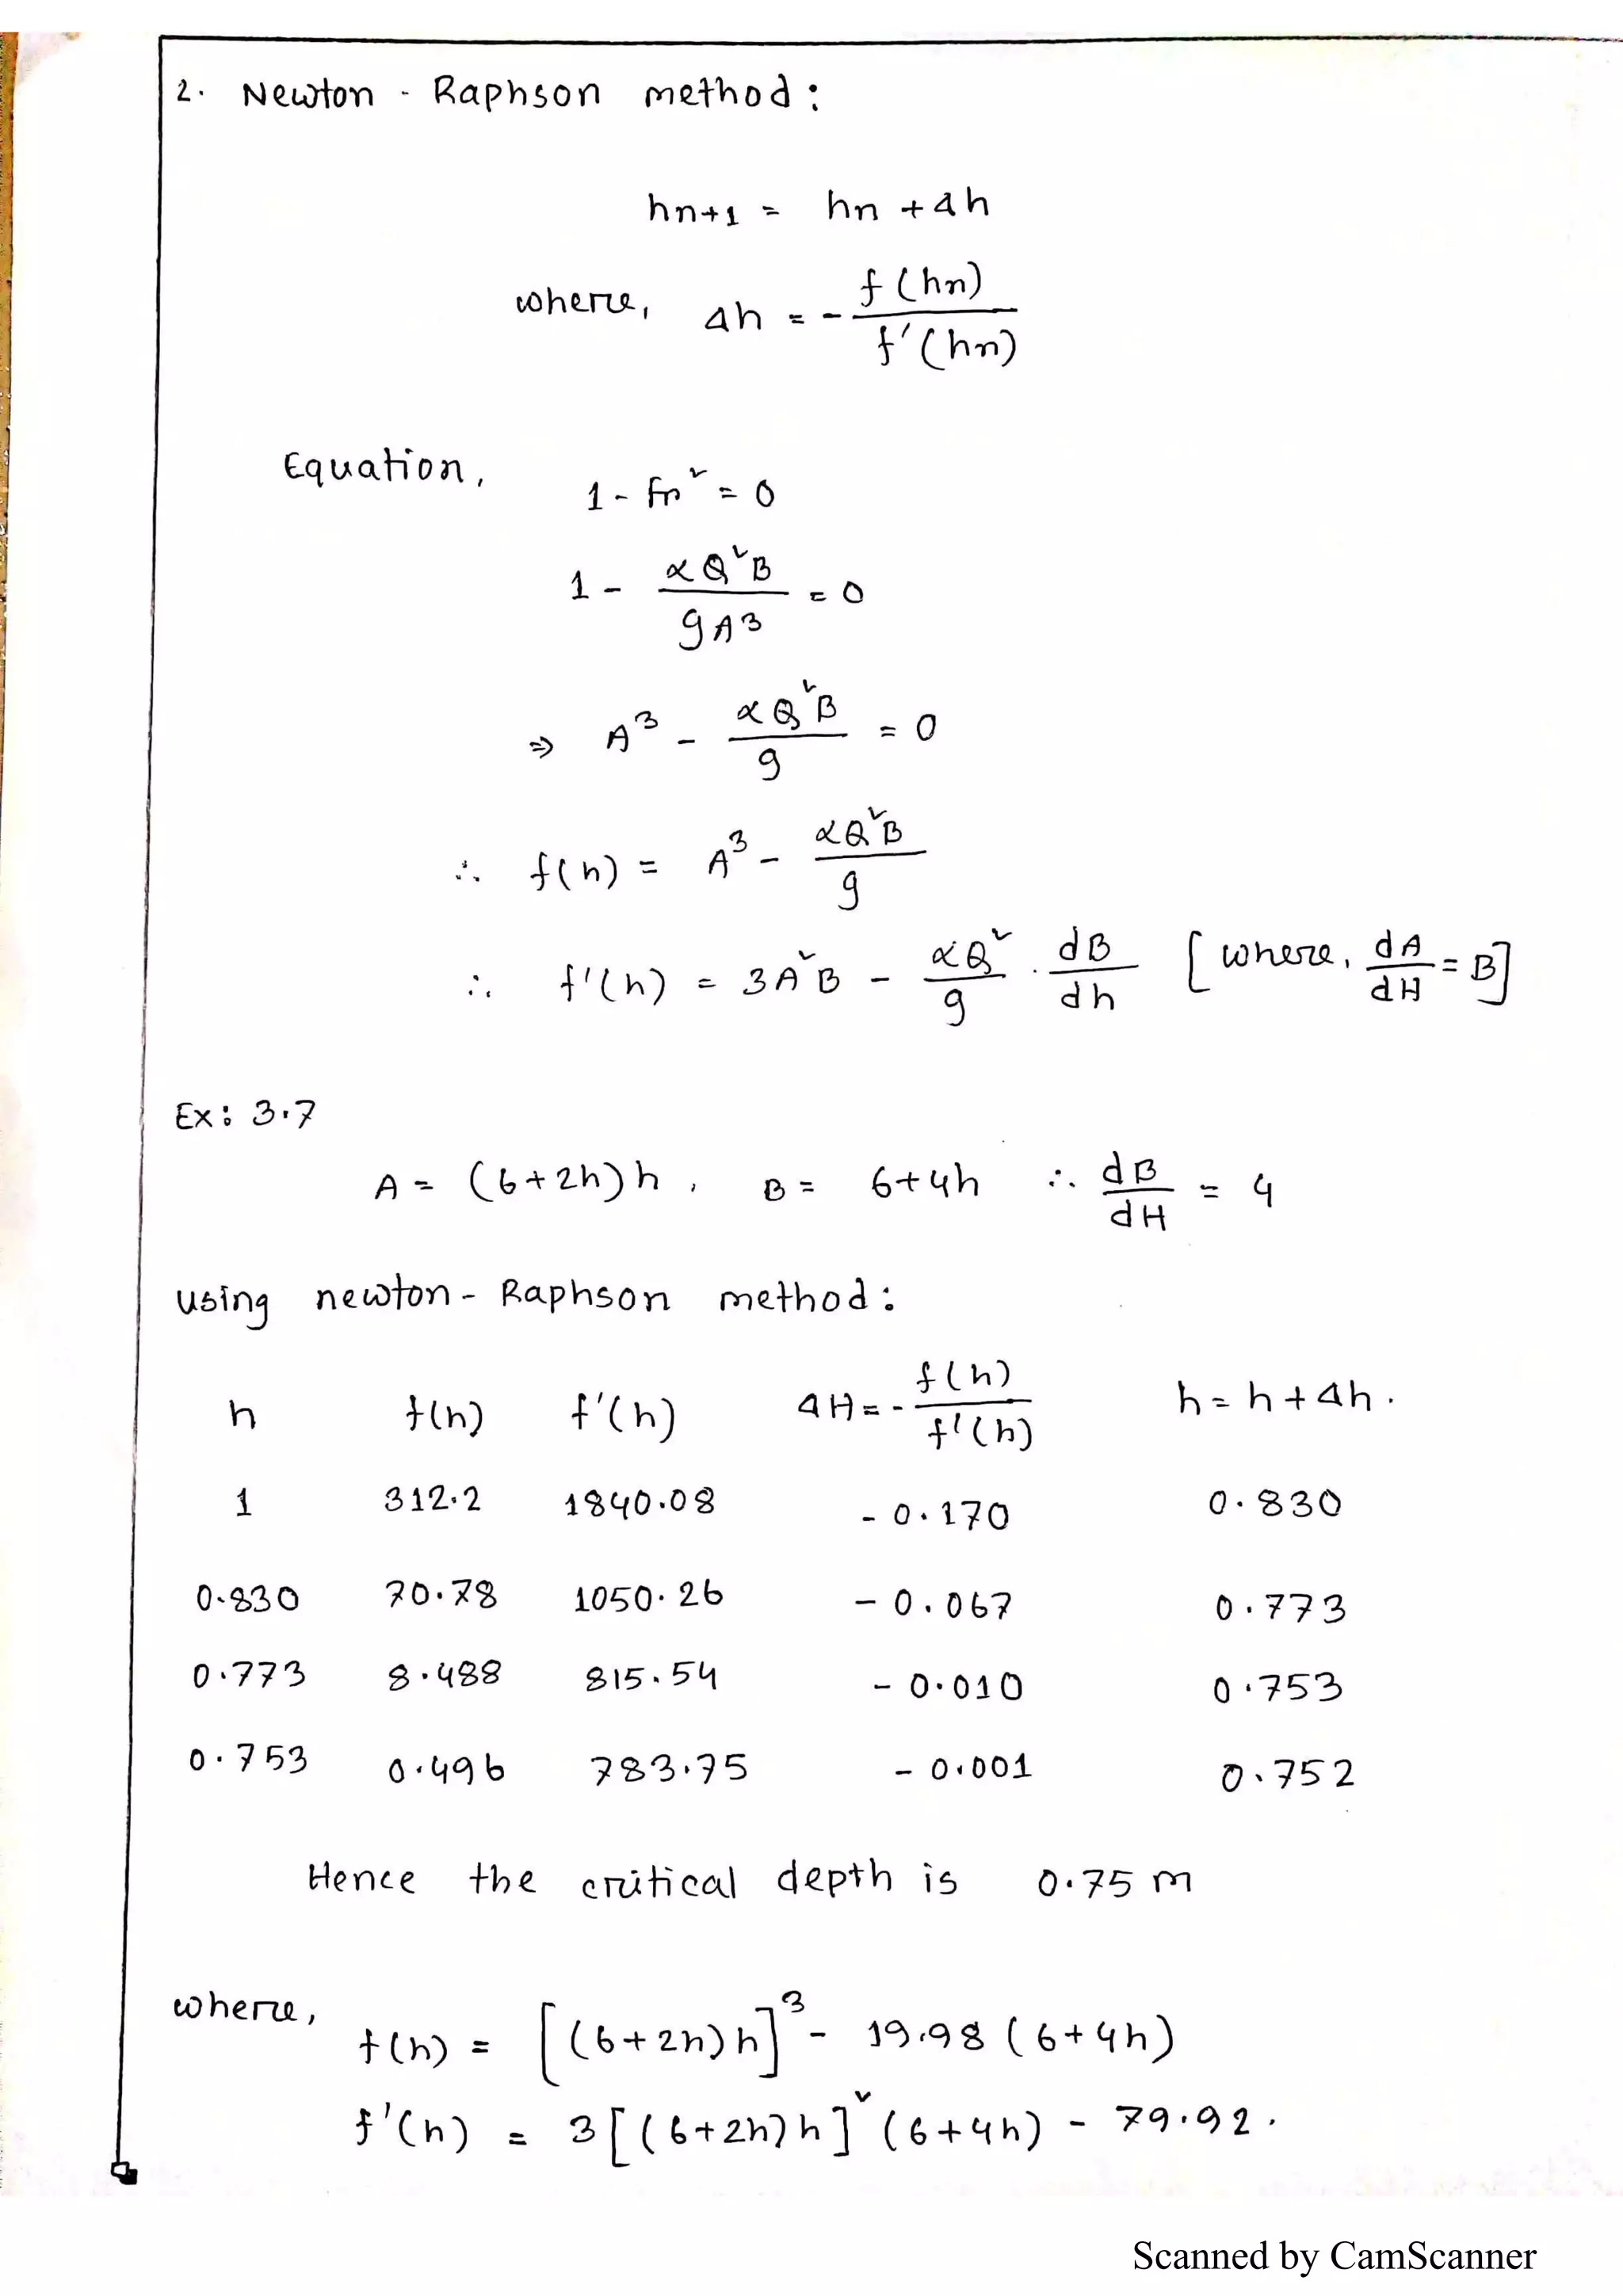 2. Newton - Raphson method:
hn+1 = hn + Δh
where, Δh = - f(hn) / f'(hn)
Equation, 1 - Fr² = 0
1 - αQ²B / gA³ = 0
⇒ A³ - αQ²B / g = 0
∴ f(h) = A³ - αQ²B / g
∴ f'(h) = 3A²B - αQ² / g · dB / dh [where, dA / dH = B]
Ex: 3.7
A = (6+2h)h, B = 6+4h ∴ dB / dH = 4
Using newton - Raphson method:
h f(h) f'(h) ΔH = - f(h) / f'(h) h = h + Δh.
1 312.2 1840.08 - 0.170 0.830
0.830 70.78 1050.26 - 0.067 0.773
0.773 8.488 815.54 - 0.010 0.753
0.753 0.496 783.75 - 0.001 0.752
Hence the critical depth is 0.75 m
where, f(h) = [(6+2h)h]³ - 19.98 (6+4h)
f'(h) = 3[(6+2h)h]² (6+4h) - 79.92.
Scanned by CamScanner